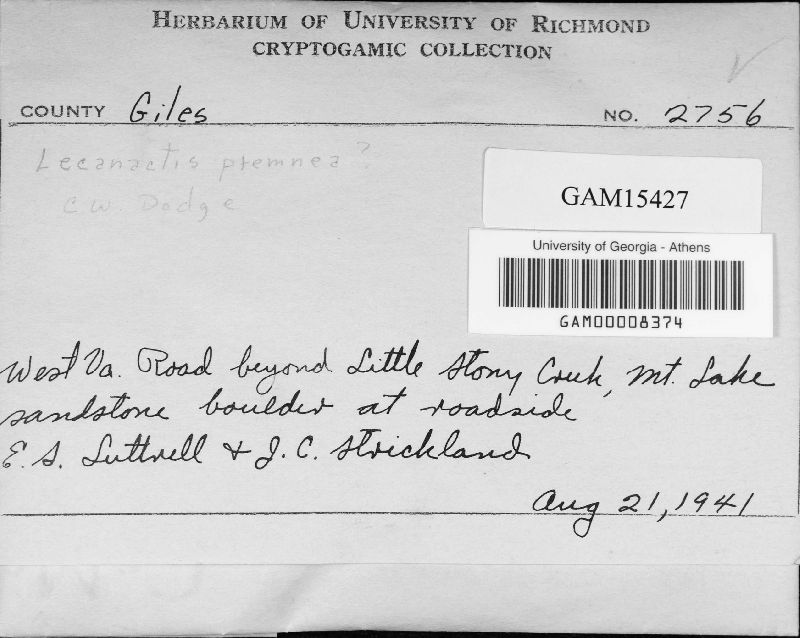 HERBARIUM OF UNIVERSITY OF RICHMOND
CRYPTOGAMIC COLLECTION
COUNTY Giles
NO. 2756
Lecanactis premnea?
C.W. Dodge
GAM15427
University of Georgia - Athens
GAM00008374
West Va. Road beyond Little Stony Creek, Mt. Lake
sandstone boulder at roadside
E. S. Luttrell & J. C. Strickland
Aug 21, 1941